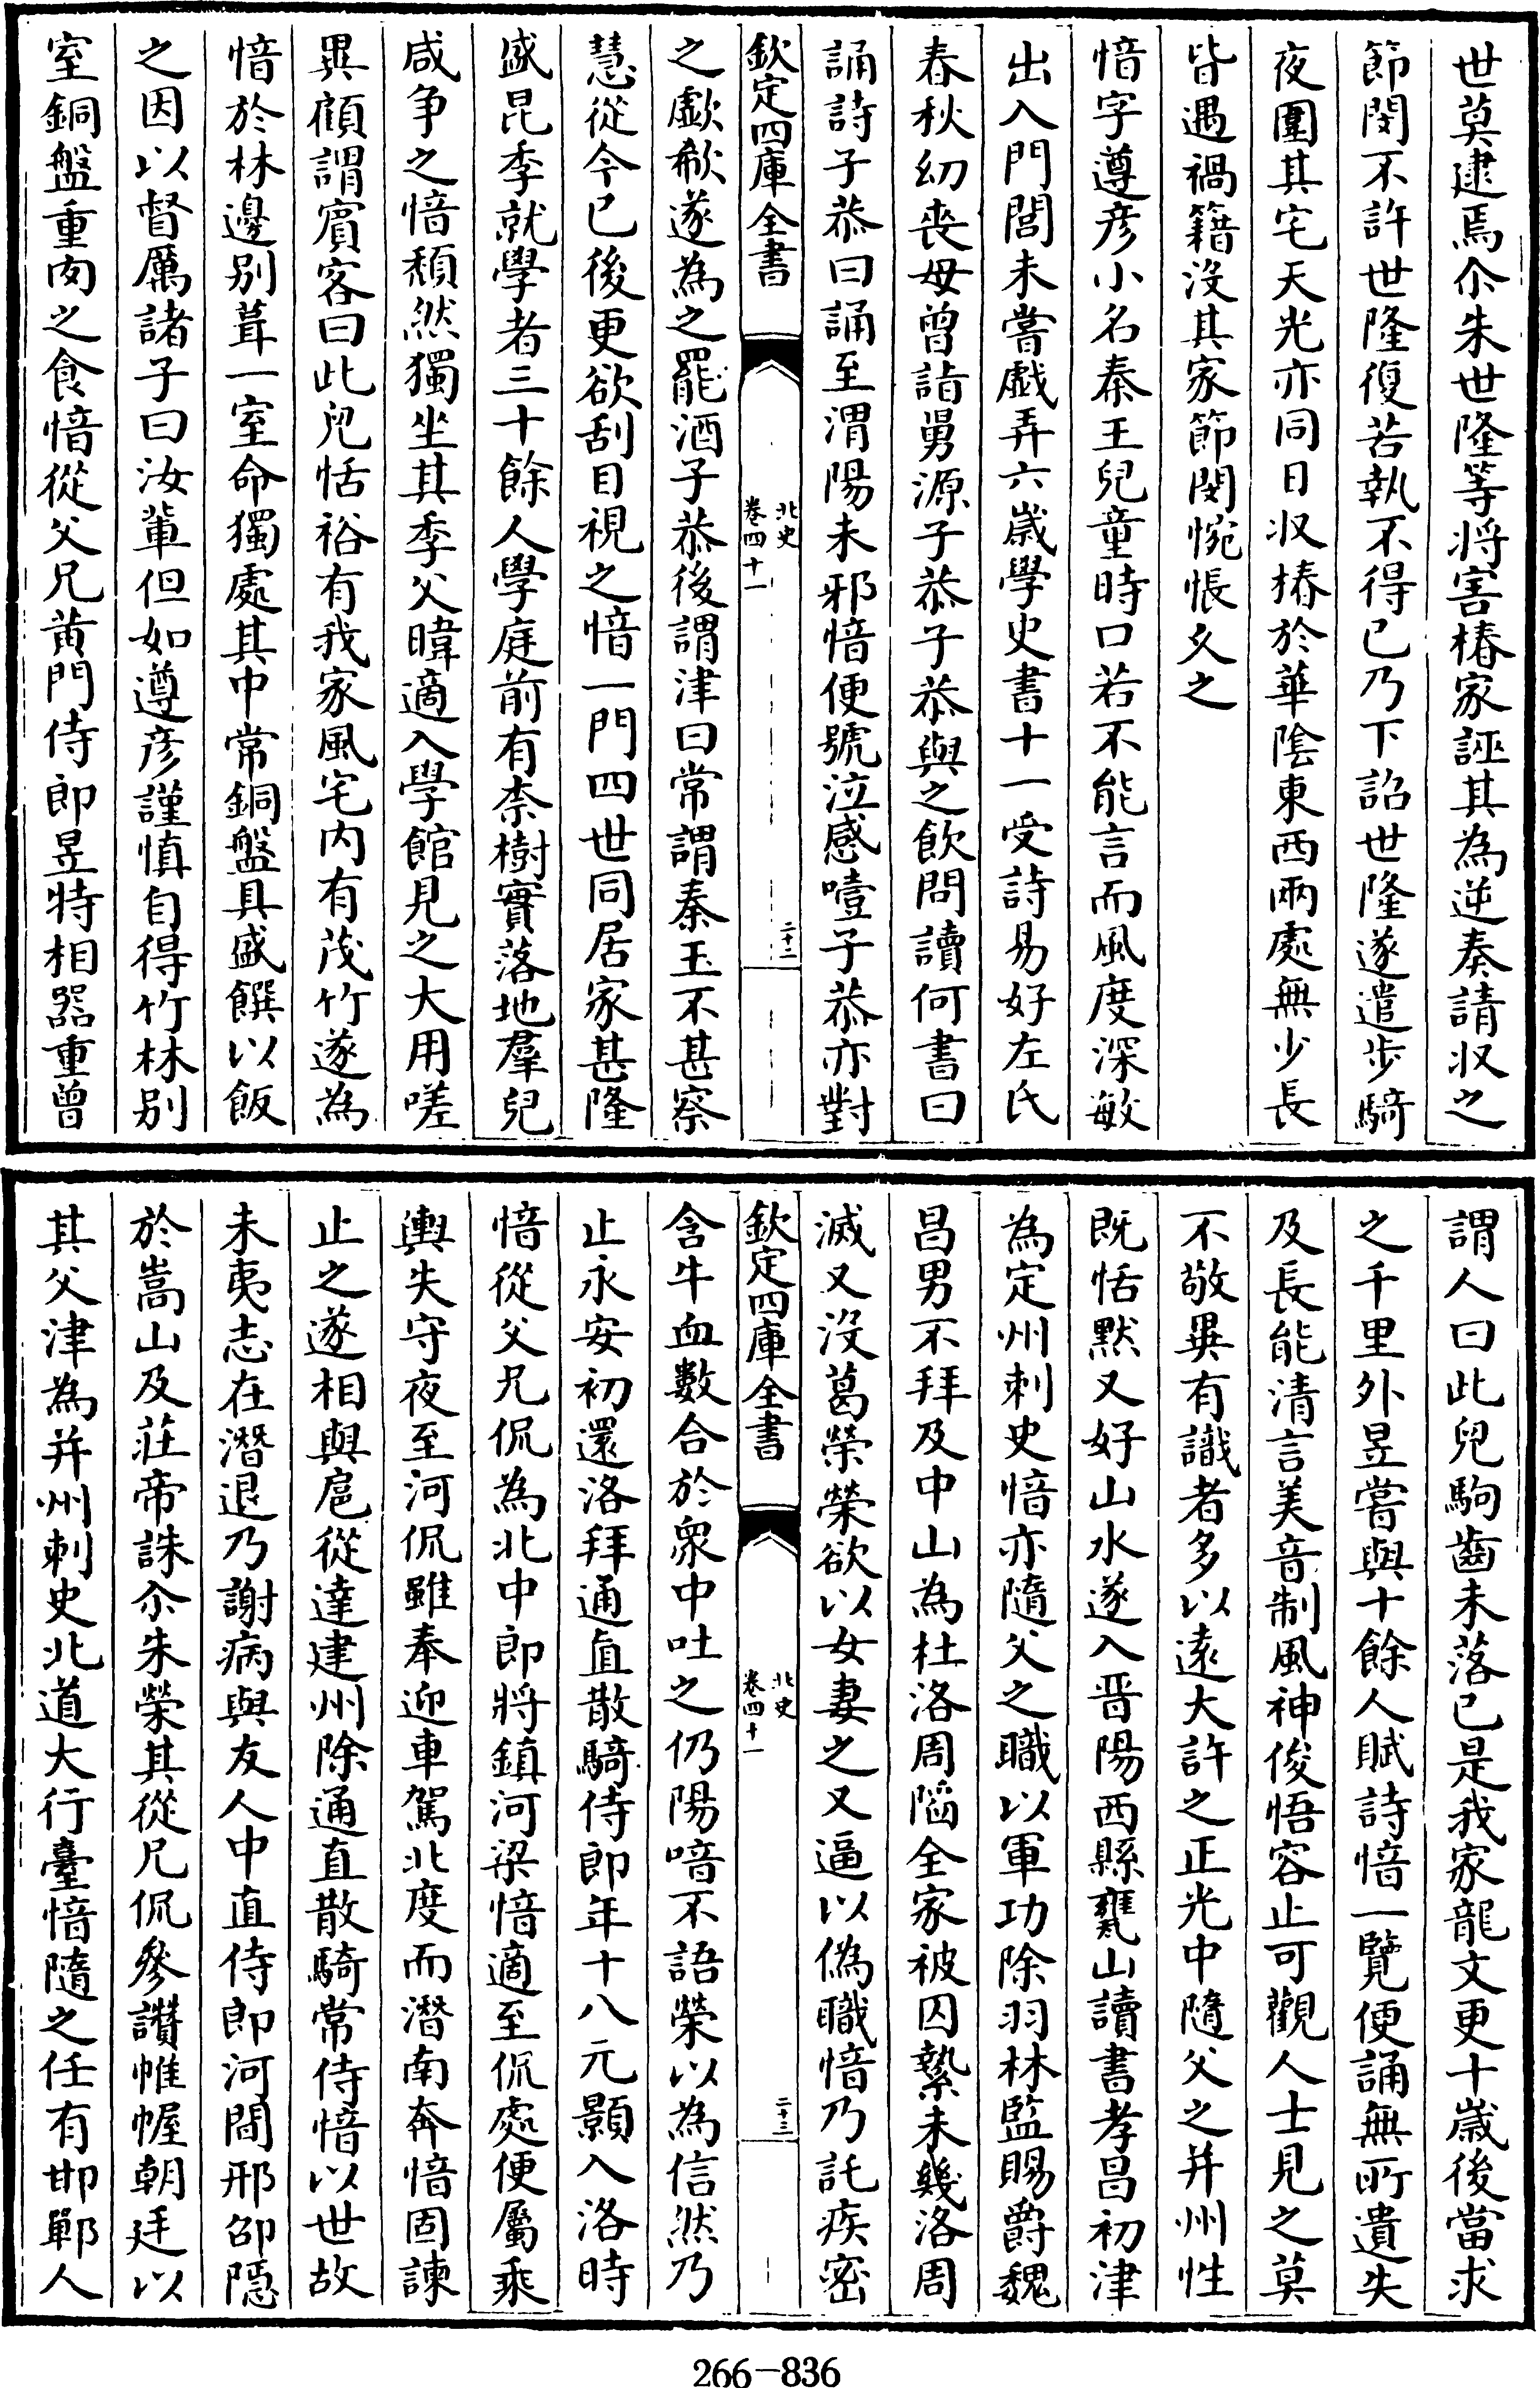 世莫逮焉尒朱世隆等将害椿家誣其為逆奏請收之
節閔不許世隆復苦執不得已乃下詔世隆遂遣步騎
夜圍其宅天光亦同日收椿於華隂東西兩處無少長
皆遇禍籍沒其家節閔惋悵久之
愔字遵彦小名秦王兒童時口若不能言而風度深敏
出入門閭未嘗戯弄六歳學史書十一受詩易好左氏
春秋幼喪母曾詣舅源子恭子恭與之飲問讀何書曰
誦詩子恭曰誦至渭陽未邪愔便號泣感噎子恭亦對
欽定四庫全書
北史
卷四十一
二十二
之歔欷遂為之罷酒子恭後謂津曰常謂秦玉不甚察
慧從今已後更欲刮目視之愔一門四世同居家甚隆
盛昆季就學者三十餘人學庭前有柰樹實落地羣兒
咸争之愔頹然獨坐其季父暐適入學館見之大用嗟
異顧謂賓客曰此兒恬裕有我家風宅内有茂竹遂為
愔於林邊别葺一室命獨處其中常銅盤具盛饌以飯
之因以督厲諸子曰汝輩但如遵彦謹慎自得竹林别
室銅盤重肉之食愔從父兄黄門侍郎昱特相器重曾
謂人曰此兒駒齒未落已是我家龍文更十歳後當求
之千里外昱嘗與十餘人賦詩愔一覽便誦無所遺失
及長能清言美音制風神俊悟容止可觀人士見之莫
不敬異有識者多以遠大許之正光中隨父之并州性
既恬默又好山水遂入晋陽西縣甕山讀書孝昌初津
為定州刺史愔亦隨父之職以軍功除羽林監賜爵魏
昌男不拜及中山為杜洛周䧟全家被囚縶未幾洛周
滅又沒葛榮榮欲以女妻之又逼以偽職愔乃託疾密
欽定四庫全書
北史
卷四十一
二十三
含牛血數合於衆中吐之仍陽喑不語榮以為信然乃
止永安初還洛拜通直散騎侍郎年十八元顥入洛時
愔從父兄侃為北中郎將鎮河梁愔適至侃處便屬乘
輿失守夜至河侃雖奉迎車駕北度而潛南奔愔固諫
止之遂相與扈從達建州除通直散騎常侍愔以世故
未夷志在潛退乃謝病與友人中直侍郎河間邢邵隠
於嵩山及莊帝誅尒朱榮其從兄侃參讚帷幄朝廷以
其父津為并州刺史北道大行臺愔隨之任有邯鄲人
266-836